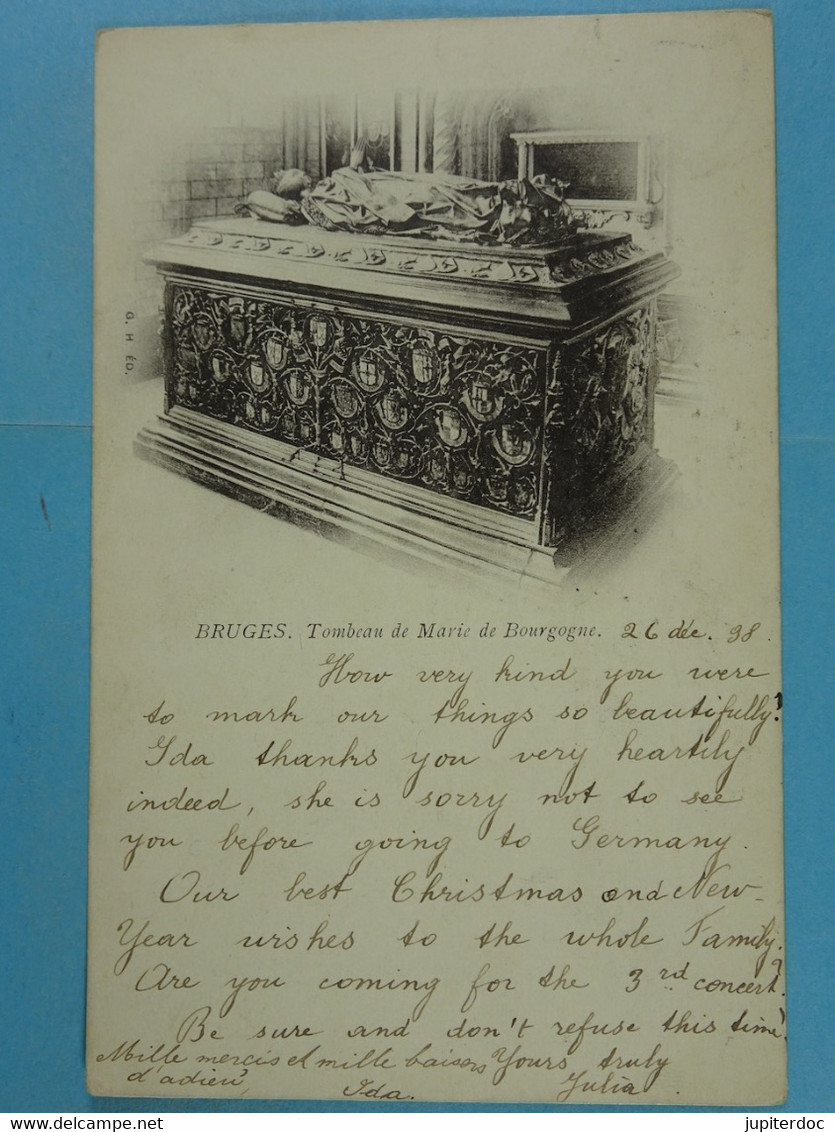 G. H ÉD.
BRUGES. Tombeau de Marie de Bourgogne. 26 déc. 98.
How very kind you were
to mark our things so beautifully!
Ida thanks you very heartily
indeed, she is sorry not to see
you before going to Germany.
Our best Christmas and New-
Year wishes to the whole Family.
Are you coming for the 3rd concert?
Be sure and don't refuse this time!
Mille mercis et mille baisers
d'adieu,
Ida.
Yours truly
Julia.
www.delcampe.net
jupiterdoc